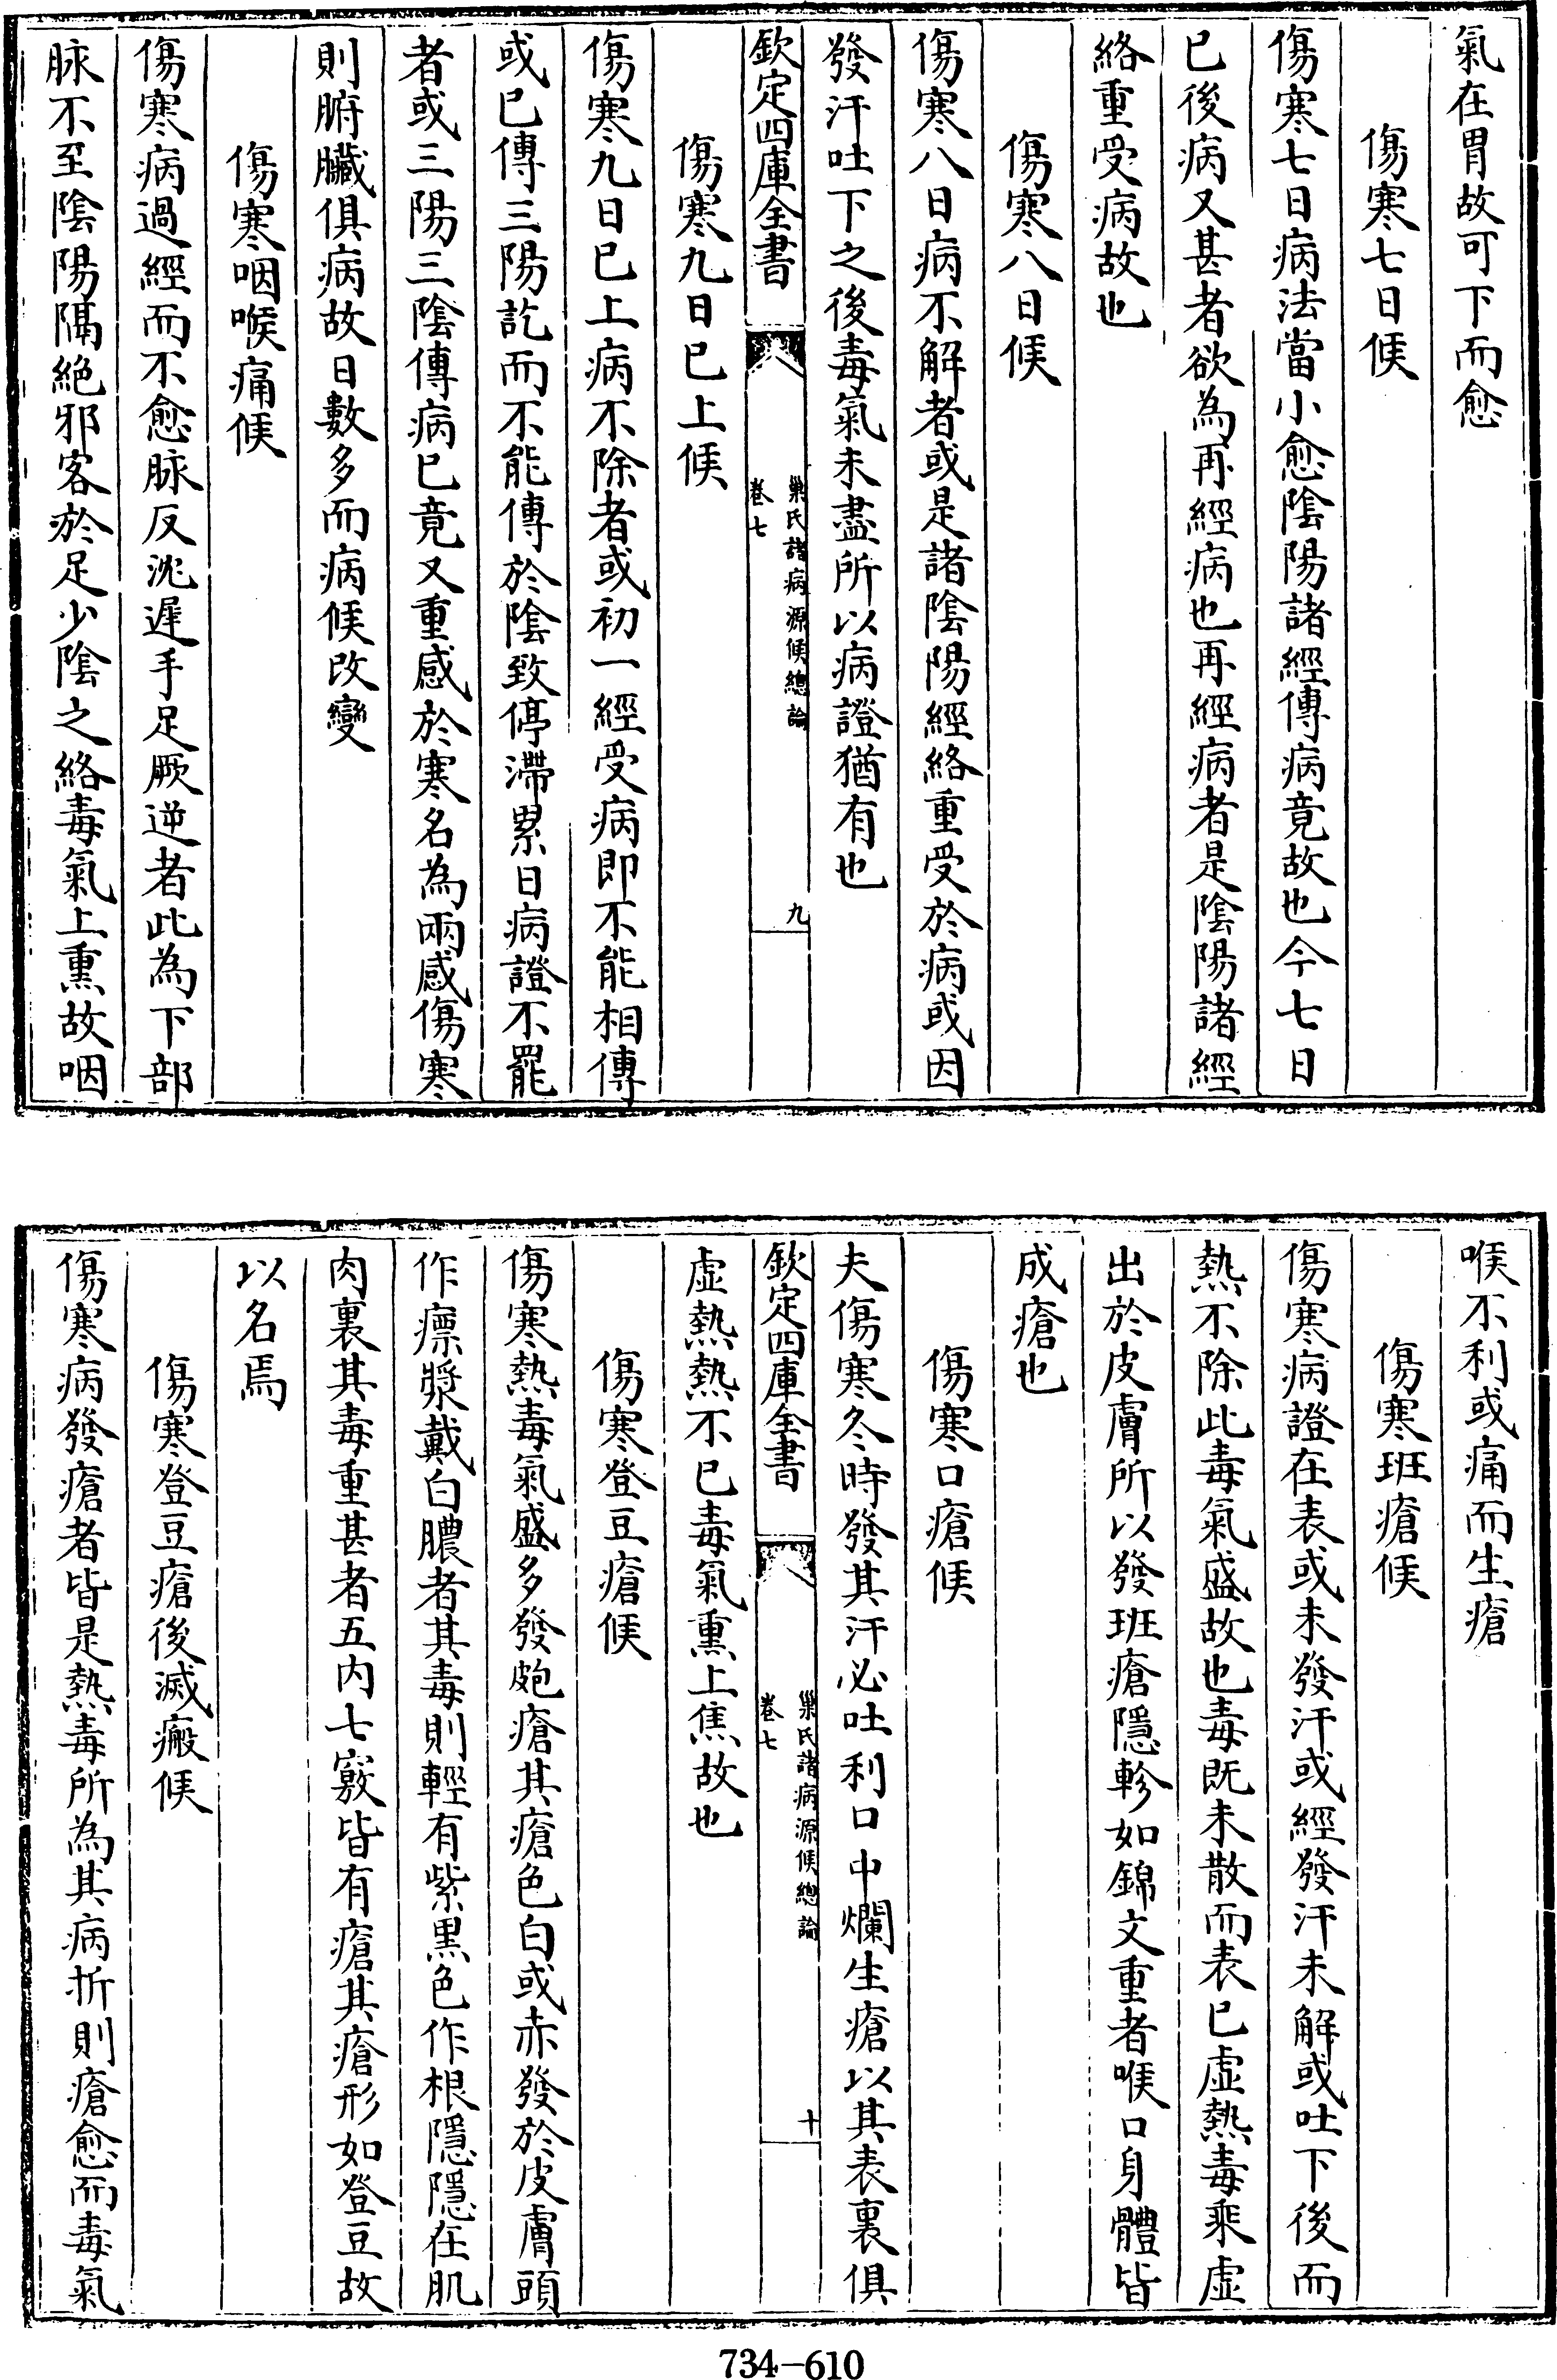 氣在胃故可下而愈
傷寒七日候
傷寒七日病法當小愈陰陽諸經傳病竟故也今七日
已後病又甚者欲為再經病也再經病者是陰陽諸經
絡重受病故也
傷寒八日候
傷寒八日病不解者或是諸陰陽經絡重受於病或因
發汗吐下之後毒氣未盡所以病證猶有也
欽定四庫全書
巢氏諸病源候總論
卷七
九
傷寒九日已上候
傷寒九日已上病不除者或初一經受病即不能相傳
或已傳三陽訖而不能傳於陰致停滯累日病證不罷
者或三陽三陰傳病已竟又重感於寒名為兩感傷寒
則腑臟俱病故日數多而病候改變
傷寒咽喉痛候
傷寒病過經而不愈脉反沈遲手足厥逆者此為下部
脉不至陰陽隔絶邪客於足少陰之絡毒氣上熏故咽
喉不利或痛而生瘡
傷寒班瘡候
傷寒病證在表或未發汗或經發汗未解或吐下後而
熱不除此毒氣盛故也毒既未散而表已虛熱毒乘虛
出於皮膚所以發班瘡隱軫如錦文重者喉口身體皆
成瘡也
傷寒口瘡候
夫傷寒冬時發其汗必吐利口中爛生瘡以其表裏俱
欽定四庫全書
巢氏諸病源候總論
卷七
十
虛熱熱不已毒氣熏上焦故也
傷寒登豆瘡候
傷寒熱毒氣盛多發皰瘡其瘡色白或赤發於皮膚頭
作瘭漿戴白膿者其毒則輕有紫黒色作根隱隱在肌
肉裏其毒重甚者五内七竅皆有瘡其瘡形如登豆故
以名焉
傷寒登豆瘡後滅瘢候
傷寒病發瘡者皆是熱毒所為其病折則瘡愈而毒氣
734-610